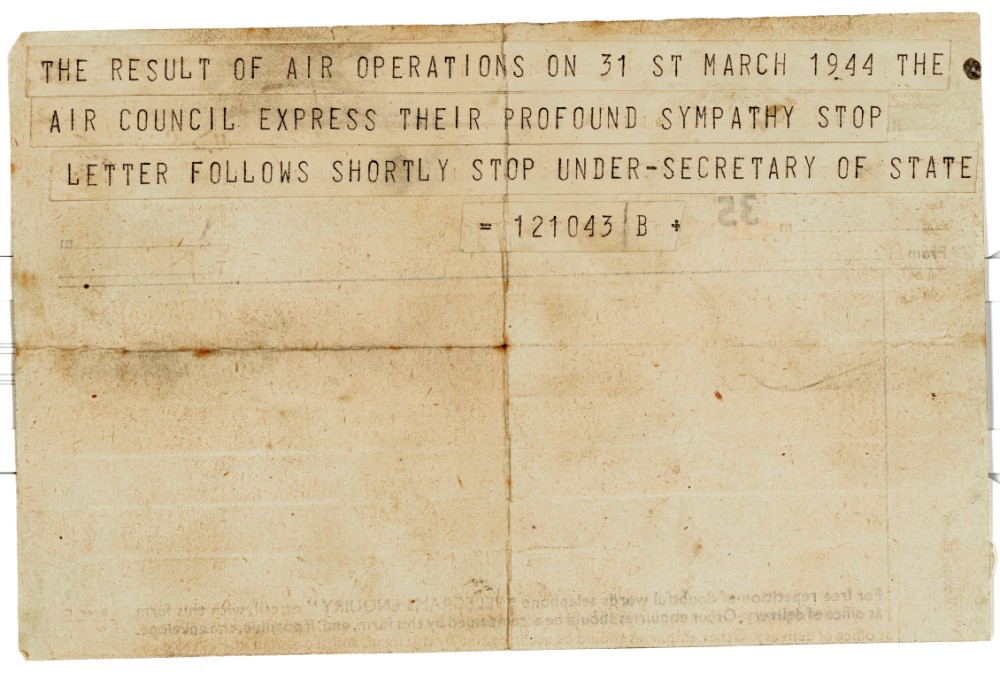 THE RESULT OF AIR OPERATIONS ON 31 ST MARCH 1944 THE
AIR COUNCIL EXPRESS THEIR PROFOUND SYMPATHY STOP
LETTER FOLLOWS SHORTLY STOP UNDER-SECRETARY OF STATE
= 121043 B +
35
m
From
To
m
For free repetition of doubtful words telephone "TELEGRAMS ENQUIRY" or call, with this form
at office of delivery. Other enquiries should be accompanied by this form, and, if possible, the envelope.